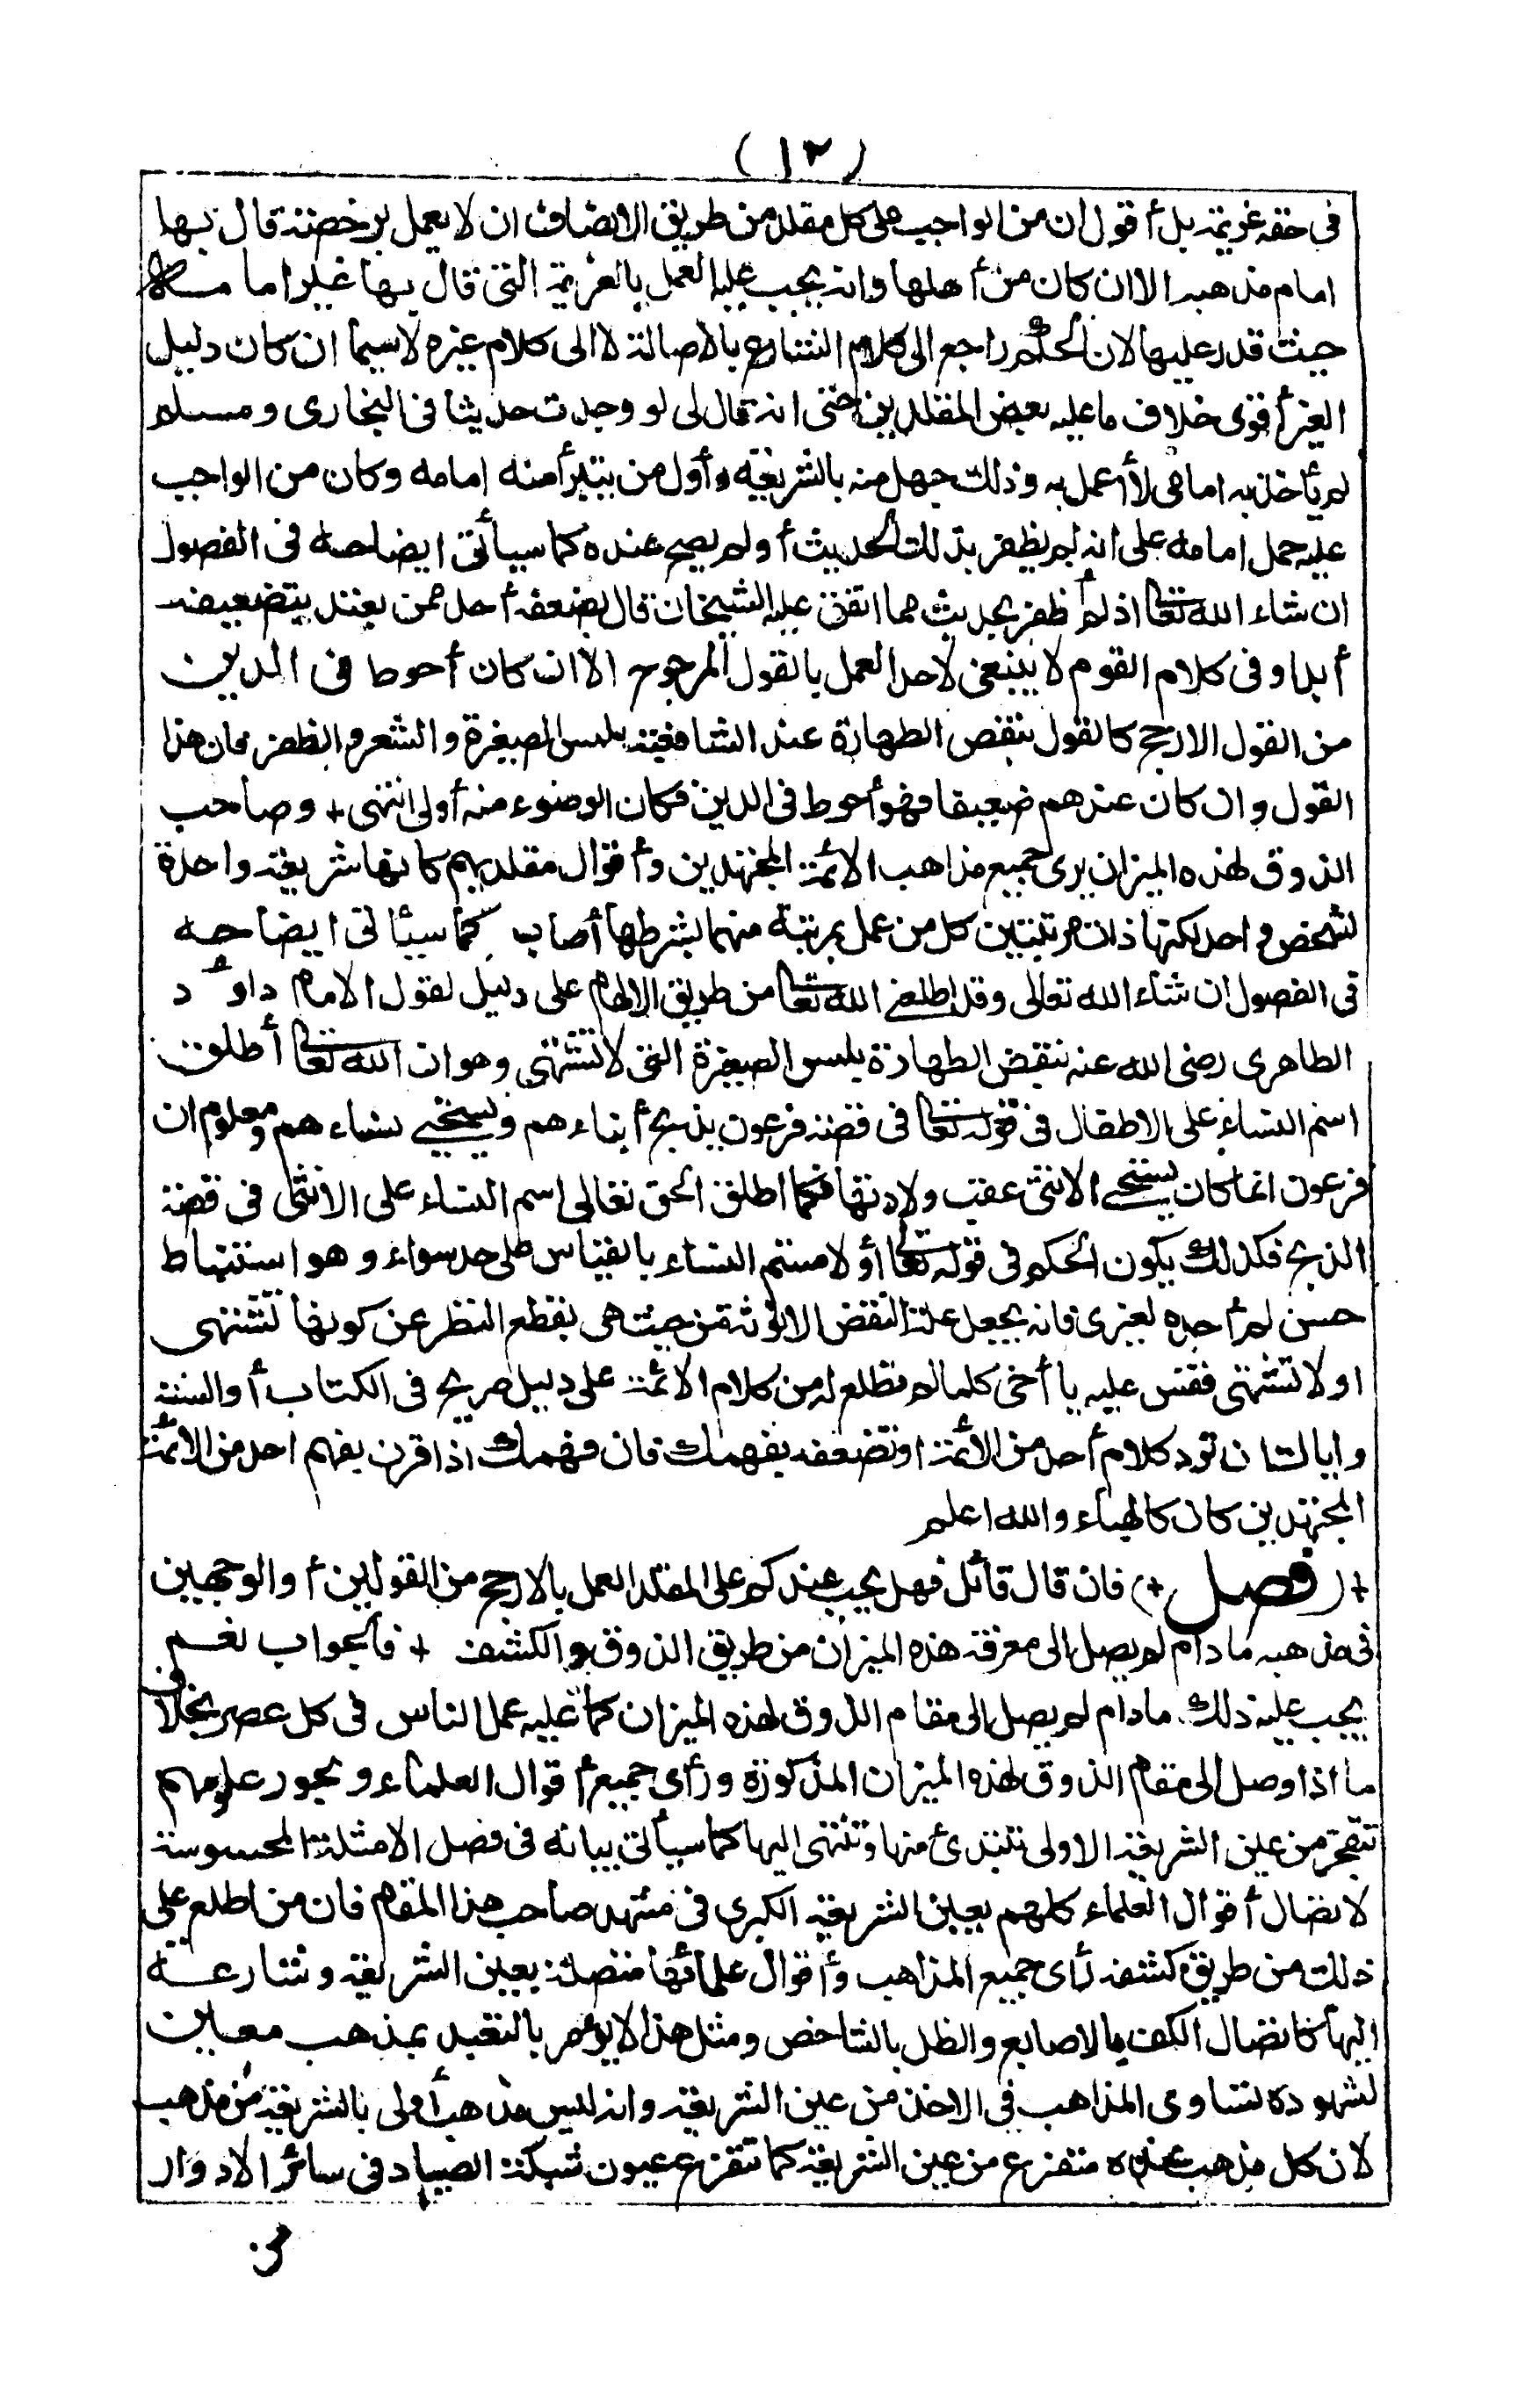 (١٢)
فى حقه عزيمة بل أقول ان من الواجب على كل مقلد من طريق الانصاف ان لا يعمل برخصة قال بها
امام مذهبه الا ان كان من أهلها وانه يجب عليه العمل بالعزيمة التى قال بها غير امامه
حيث قدر عليها لان الحكم راجع الى كلام الشارع بالاصالة لا الى كلام غيره لاسيما ان كان دليل
الغير أقوى خلاف ما عليه بعض المقلدين حتى انه قال لى لو وجدت حديثا فى البخارى ومسلم
لم يأخذ به امامى لا أعمل به وذلك جهل منه بالشريعة وأول من يتبرأ منه امامه وكان من الواجب
عليه حمل امامه على انه لم يظفر بذلك الحديث أو لم يصح عنده كما سيأتى ايضاحه فى الفصول
ان شاء الله تعالى اذ لم أظفر بحديث مما اتفق عليه الشيخان قال بضعفه أحد ممن يعتد بتضعيفه
أبدا وفى كلام القوم لا ينبغى لاحد العمل بالقول المرجوح الا ان كان أحوط فى الدين
من القول الارجح كالقول بنقض الطهارة عند الشافعية بلمس الصغيرة والشعر والظفر فان هذا
القول وان كان عندهم ضعيفا فهو أحوط فى الدين فكان الوضوء منه أولى انتهى + وصاحب
الذوق لهذه الميزان يرى جميع مذاهب الائمة المجتهدين وأقوال مقلديهم كانها شريعة واحدة
لشخص واحد لكنها ذات مرتبتين كل من عمل بمرتبة منهما بشرطها أصاب كما سيأتى ايضاحه
فى الفصول ان شاء الله تعالى وقد اطلعنى الله تعالى من طريق الالهام على دليل لقول الامام داود
الظاهرى رضى الله عنه بنقض الطهارة بلمس الصغيرة التى لا تشتهى وهو ان الله تعالى أطلق
اسم النساء على الاطفال فى قوله تعالى فى قصة فرعون يذبح أبناءهم ويستحيى نساءهم ومعلوم ان
فرعون انما كان يستحيى الانثى عقب ولادتها فكما اطلق الحق تعالى اسم النساء على الانثى فى قصة
الذبح فكذلك يكون الحكم فى قوله تعالى أو لامستم النساء بالقياس على حد سواء وهو استنباط
حسن لم أجده لغيرى فانه يجعل علة النقض الانوثة من حيث هى بقطع النظر عن كونها تشتهى
او لا تشتهى فقس عليه يا أخى كلما لم تطلع له من كلام الائمة على دليل صريح فى الكتاب أو السنة
واياك ان ترد كلام أحد من الائمة او تضعفه بفهمك فان فهمك اذا قرن بفهم احد من الائمة
المجتهدين كان كالهباء والله اعلم
+ (فصل +) فان قال قائل فهل يجب عندكم على المقلد العمل بالارجح من القولين أو الوجهين
فى مذهبه ما دام لم يصل الى معرفة هذه الميزان من طريق الذوق والكشف + فالجواب نعم
يجب عليه ذلك ما دام لم يصل الى مقام الذوق لهذه الميزان كما عليه عمل الناس فى كل عصر بخلاف
ما اذا وصل الى مقام الذوق لهذه الميزان المذكورة ورأى جميع أقوال العلماء وبحور علومهم
تتفجر من عين الشريعة الاولى تبتدئ منها وتنتهى اليها كما سيأتى بيانه فى فصل الامثلة المحسوسة
لاتصال أقوال العلماء كلهم بعين الشريعة الكبرى فى مشهد صاحب هذا المقام فان من اطلع على
ذلك من طريق كشفه رأى جميع المذاهب وأقوال علمائها متصلة بعين الشريعة وشارعة
اليها كاتصال الكف بالاصابع والظل بالشاخص ومثل هذا لا يؤمر بالتعبد بمذهب معين
لشهوده تساوى المذاهب فى الاخذ من عين الشريعة وانه ليس مذهب أولى بالشريعة من مذهب
لان كل مذهب عنده متفرع من عين الشريعة كما تتفرع عيون شبكة الصياد فى سائر الادوار